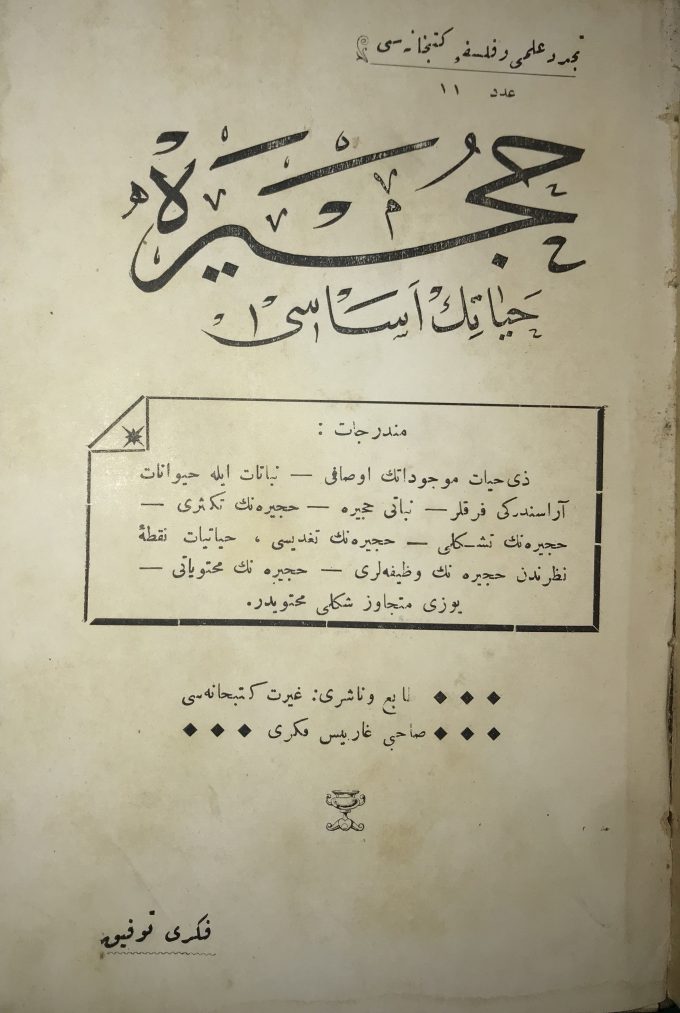 تجدد علمی و فلسفه کتبخانه‌سی
عدد ۱۱
حجیره
حیاتك اساسی
مندرجات :
ذی حیات موجوداتك اوصافی — نباتات ایله حیوانات
آراسندركی فرقلر — نباتی حجیره — حجیره‌نك تكثری —
حجیره‌نك تشكلی — حجیره‌نك تغدیسی ، حیاتیات نقطهٔ
نظرندن حجیره نك وظیفه‌لری — حجیره نك محتویاتی —
یوزی متجاوز شكلی محتویدر.
طابع وناشری: غیرت كتبخانه‌سی
صاحبی غاربیس فكری
فكری توفیق